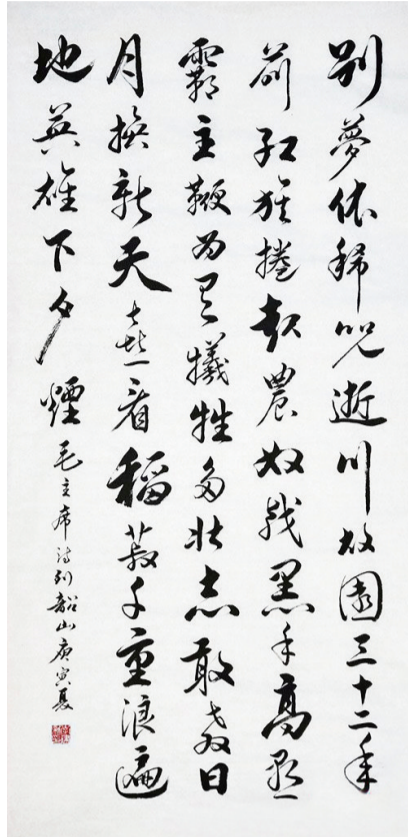 別夢依稀咒逝川故園三十二年
前紅旗捲起農奴戟黑手高懸
霸主鞭為有犧牲多壯志敢教日
月換新天喜看稻菽千重浪遍
地英雄下夕煙
毛主席詩到韶山庚寅夏